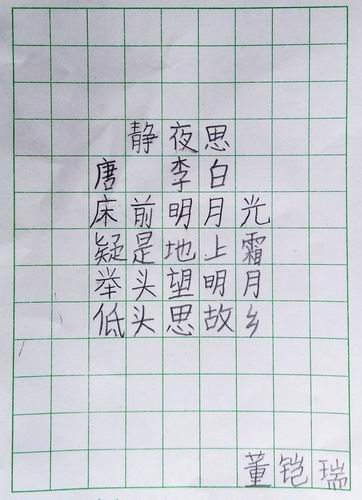 静夜思
唐 李白
床前明月光
疑是地上霜
举头望明月
低头思故乡
董铠瑞